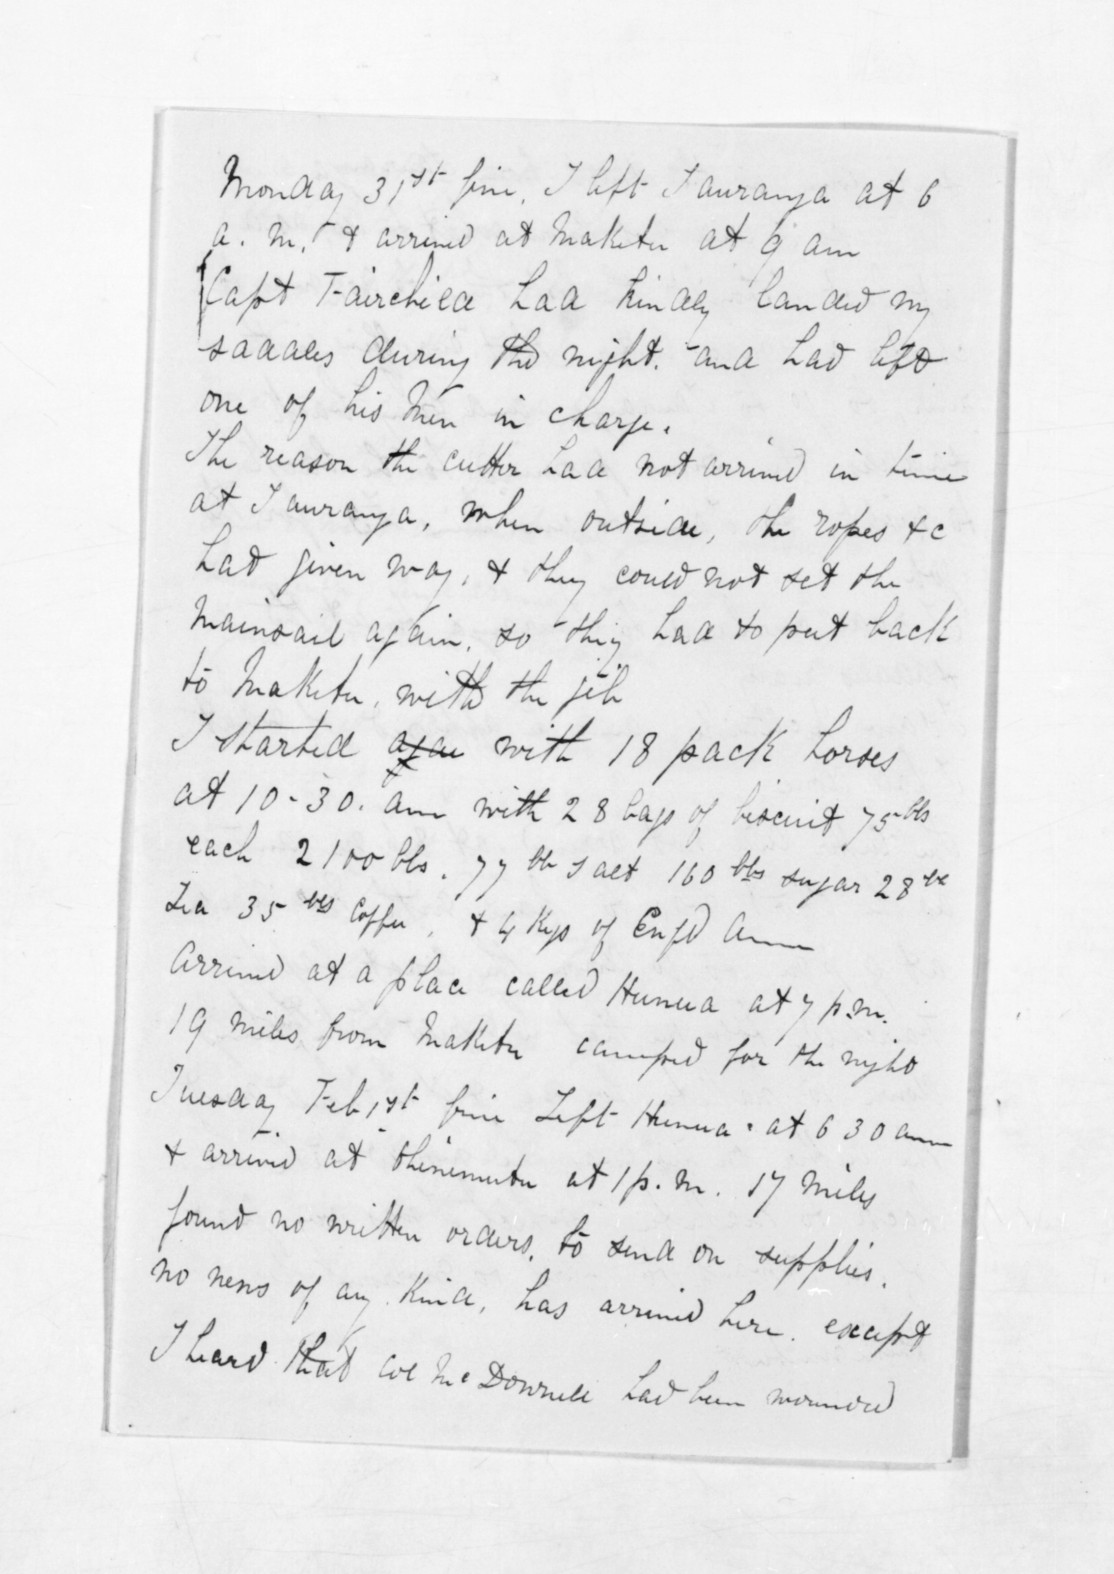 Monday 31st fine, I left Tauranga at 6
a. m. & arrived at Maketu at 9 am
Capt Fairchild had kindly landed my
saddles during the night. and had left
one of his Men in charge.
The reason the cutter had not arrived in time
at Tauranga, when outside, the ropes &c
had given way, & they could not set the
Mainsail again, so they had to put back
to Maketu, with the jib
I started agai with 18 pack horses
at 10-30. am with 28 bags of biscuit 75 lbs
each 2100 lbs. 77 lb Salt 160 lbs sugar 28 lb
Tea 35 lbs Coffee, & 4 Kegs of Enfd Amm
Arrived at a place called Hunua at 7 p.m.
19 miles from Maketu camped for the night
Tuesday Feb 1st fine Left Hunua at 6 30 am
& arrived at Ohinemutu at 1 p.m. 17 miles
found no written orders, to send on supplies.
no news of any Kind, has arrived here. except
I heard that Col McDonnell had been wounded